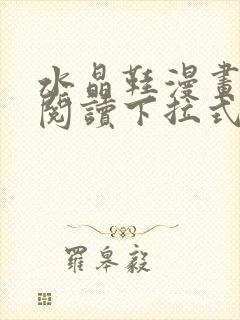 水晶鞋漫畫
閱讀下拉式
羅皋毅